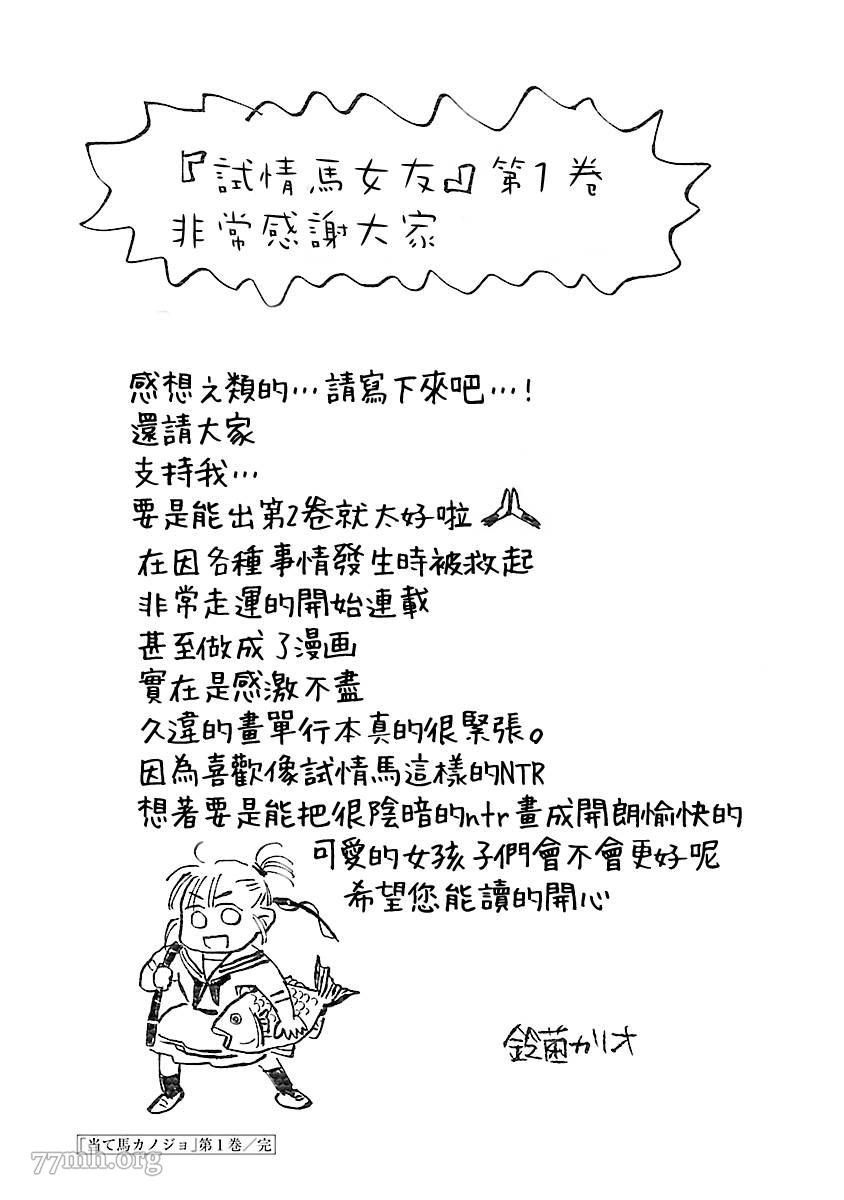 『試情馬女友』第1卷
非常感謝大家
感想之類的…請寫下來吧…!
還請大家
支持我…
要是能出第2卷就太好啦
在因各種事情發生時被救起
非常走運的開始連載
甚至做成了漫画
實在是感激不盡
久違的畫單行本真的很緊張。
因為喜歡像試情馬這樣的NTR
想著要是能把很陰暗的ntr畫成開朗愉快的
可愛的女孩子們會不會更好呢
希望您能讀的開心
鈴菌カリオ
「当て馬カノジョ」第1巻/完
77mh.org